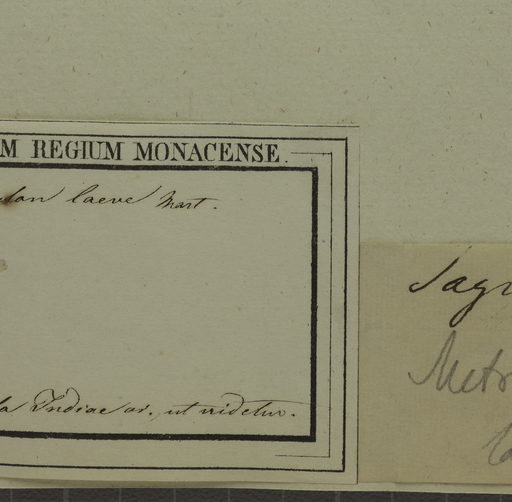 M REGIUM MONACENSE.
laeve Mart.
Indiae or., ut videtur.
Sagu
Metr